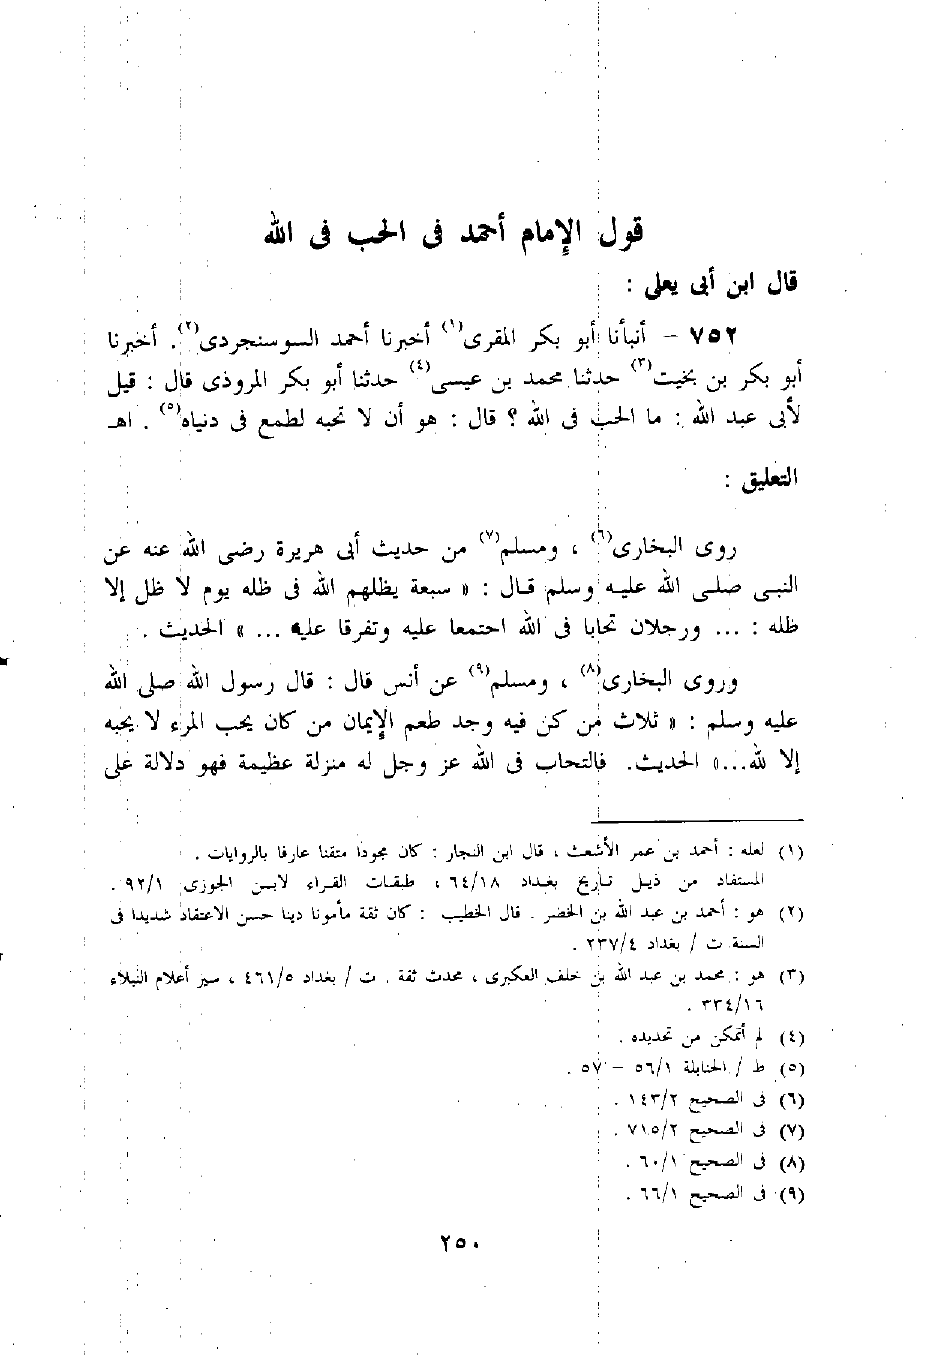 قول الإمام أحمد فى الحب فى الله
قال ابن أبى يعلى :
٧٥٢ – أنبأنا أبو بكر المقرى(١) أخبرنا أحمد السوسنجردى(٢). أخبرنا
أبو بكر بن بخيت(٣) حدثنا محمد بن عيسى(٤) حدثنا أبو بكر المروذى قال : قيل
لأبى عبد الله : ما الحب فى الله ؟ قال : هو أن لا تحبه لطمع فى دنياه(٥) . اهـ
التعليق :
روى البخارى(٦) ، ومسلم(٧) من حديث أبى هريرة رضى الله عنه عن
النبى صلى الله عليه وسلم قال : « سبعة يظلهم الله فى ظله يوم لا ظل إلا
ظله : ... ورجلان تحابا فى الله اجتمعا عليه وتفرقا عليه ... » الحديث .
وروى البخارى(٨) ، ومسلم(٩) عن أنس قال : قال رسول الله صلى الله
عليه وسلم : « ثلاث من كن فيه وجد طعم الإيمان من كان يحب المرء لا يحبه
إلا لله...» الحديث. فالتحاب فى الله عز وجل له منزلة عظيمة فهو دلالة على
(١) لعله : أحمد بن عمر الأشعث ، قال ابن النجار : كان مجودا متقنا عارفا بالروايات .
المستفاد من ذيل تاريخ بغداد ٦٤/١٨ ، طبقات القراء لابن الجوزى ٩٢/١ .
(٢) هو : أحمد بن عبد الله بن الخضر . قال الخطيب : كان ثقة مأمونا دينا حسن الاعتقاد شديدا فى
السنة ت / بغداد ٢٣٧/٤ .
(٣) هو : محمد بن عبد الله بن خلف العكبرى ، محدث ثقة . ت / بغداد ٤٦١/٥ ، سير أعلام النبلاء
٣٣٤/١٦ .
(٤) لم أتمكن من تحديده .
(٥) ط / الحنابلة ٥٦/١ – ٥٧ .
(٦) فى الصحيح ١٤٣/٢ .
(٧) فى الصحيح ٧١٥/٢ .
(٨) فى الصحيح ٦٠/١ .
(٩) فى الصحيح ٦٦/١ .
٢٥٠